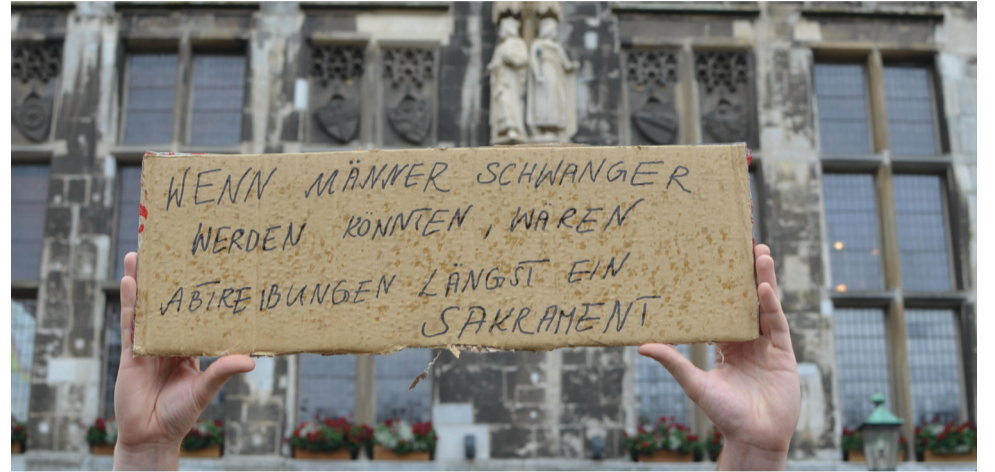 WENN MÄNNER SCHWANGER
WERDEN KÖNNTEN, WÄREN
ABTREIBUNGEN LÄNGST EIN
SAKRAMENT